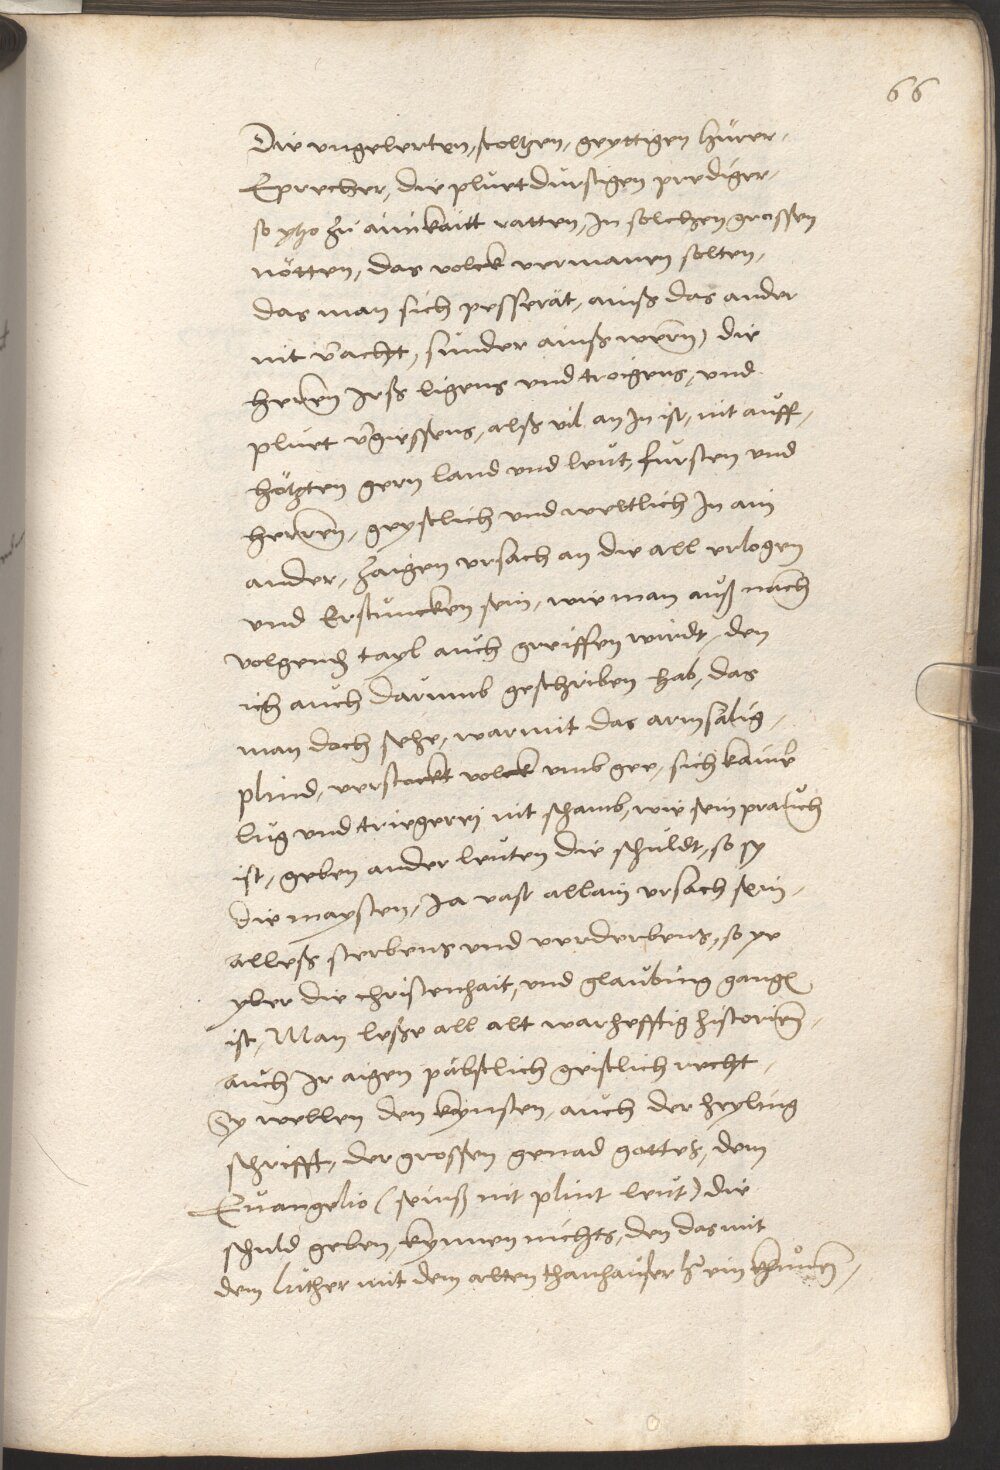 66
Die ungelerten, stoltzen, geyttigen hurer,
Eprecher, die pluetdurstigen prediger,
so ytzo zu ainikaitt ratten, In solchen grossen
nötten, das volck vermanen solten,
das man sich pesserät, ainß das ander
nit v̄acht, sunder ainß wern̄, die
herren̄ Irß ligens und triegens, und
pluet v̄giessens, alß vil an In ist, nit auff,
hötzten gern land und leut, fursten und
herren̄, geystlich und weltlich In ain
ander, zaigen ursach an die all erlogen
und erstuncken sein, wie man auß nach
volgend tayl auch greiffen wirdt, den
ich auch darumb geschriben hab, das
man doch sehe, warmit das armsälig,
plind, verstockt volck umb gee, sich kainer
lug und triegerei nit schamb, wie sein prauch
ist, geben ander leuten die schuldt, so sy
die maysten, Ja vast allain ursach sein,
alleß sterbens und verderbens, so ye
yber die christenhait, und glaubing gangen
ist, Man leße all alt warhefftig historien̄,
auch Ir aigen päbstlich geistlich recht,
Sy wellen den kunsten, auch der heyling
schrifft, der grossen genad gottes, dem
Euangelio (seinß nit plint leut) die
schuld geben, kynnen nichts, den das mit
dem luther mit dem alten thanhauser